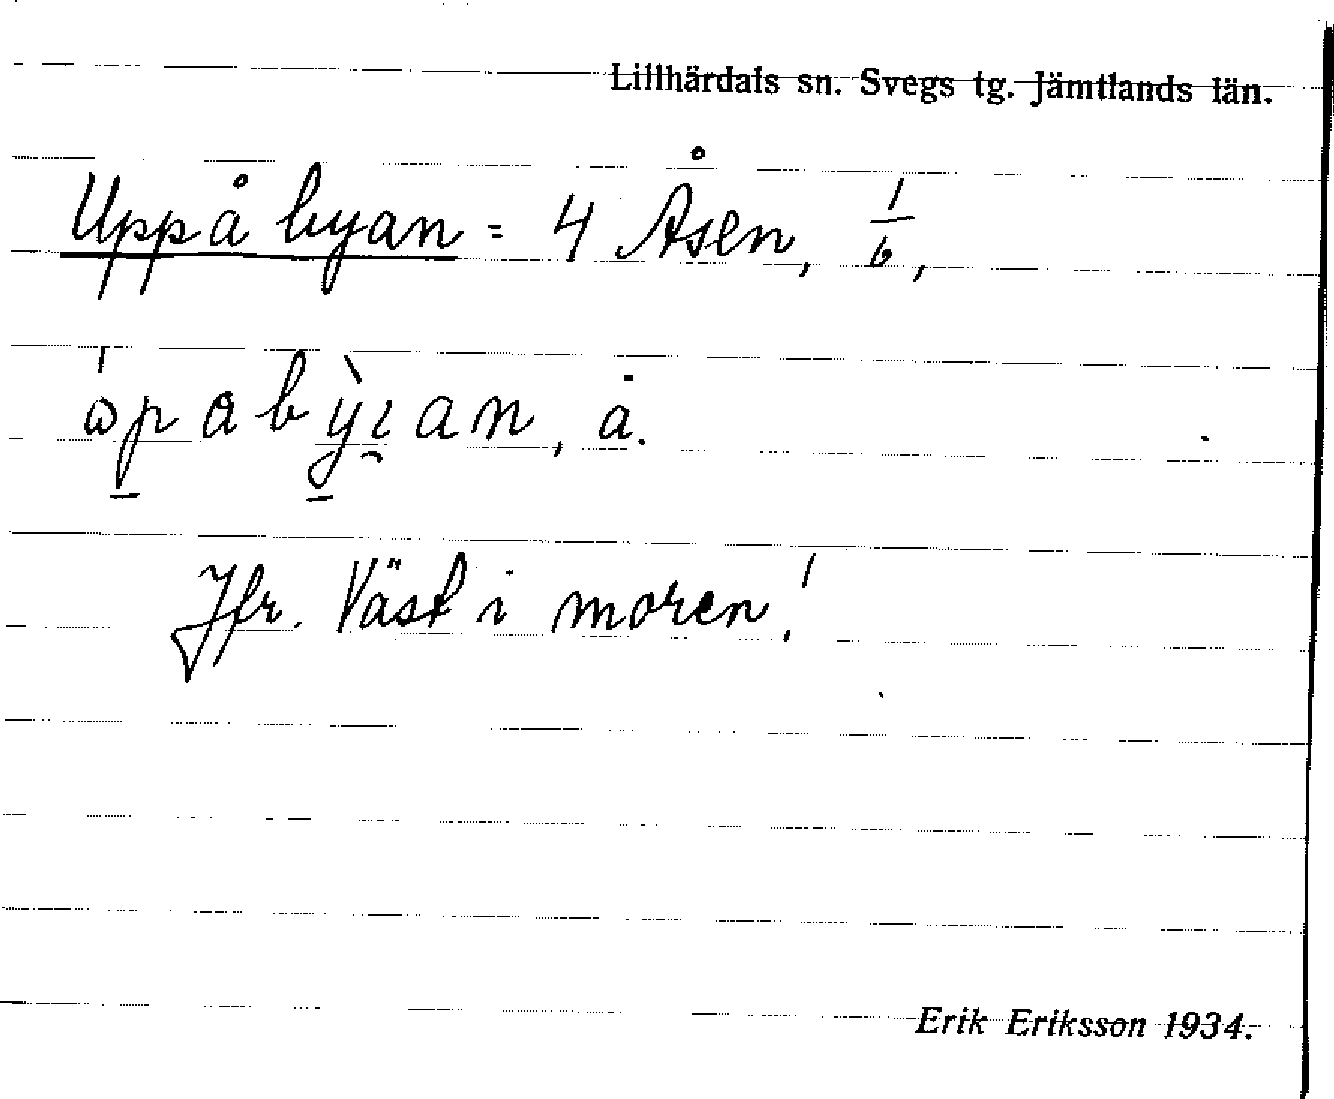 Lillhärdals sn. Svegs tg. Jämtlands län.
Uppå byan = 4 Åsen, 1/6,
ɷ́pabỳi̯an, å.
Jfr. Väst i moren!
Erik Eriksson 1934.